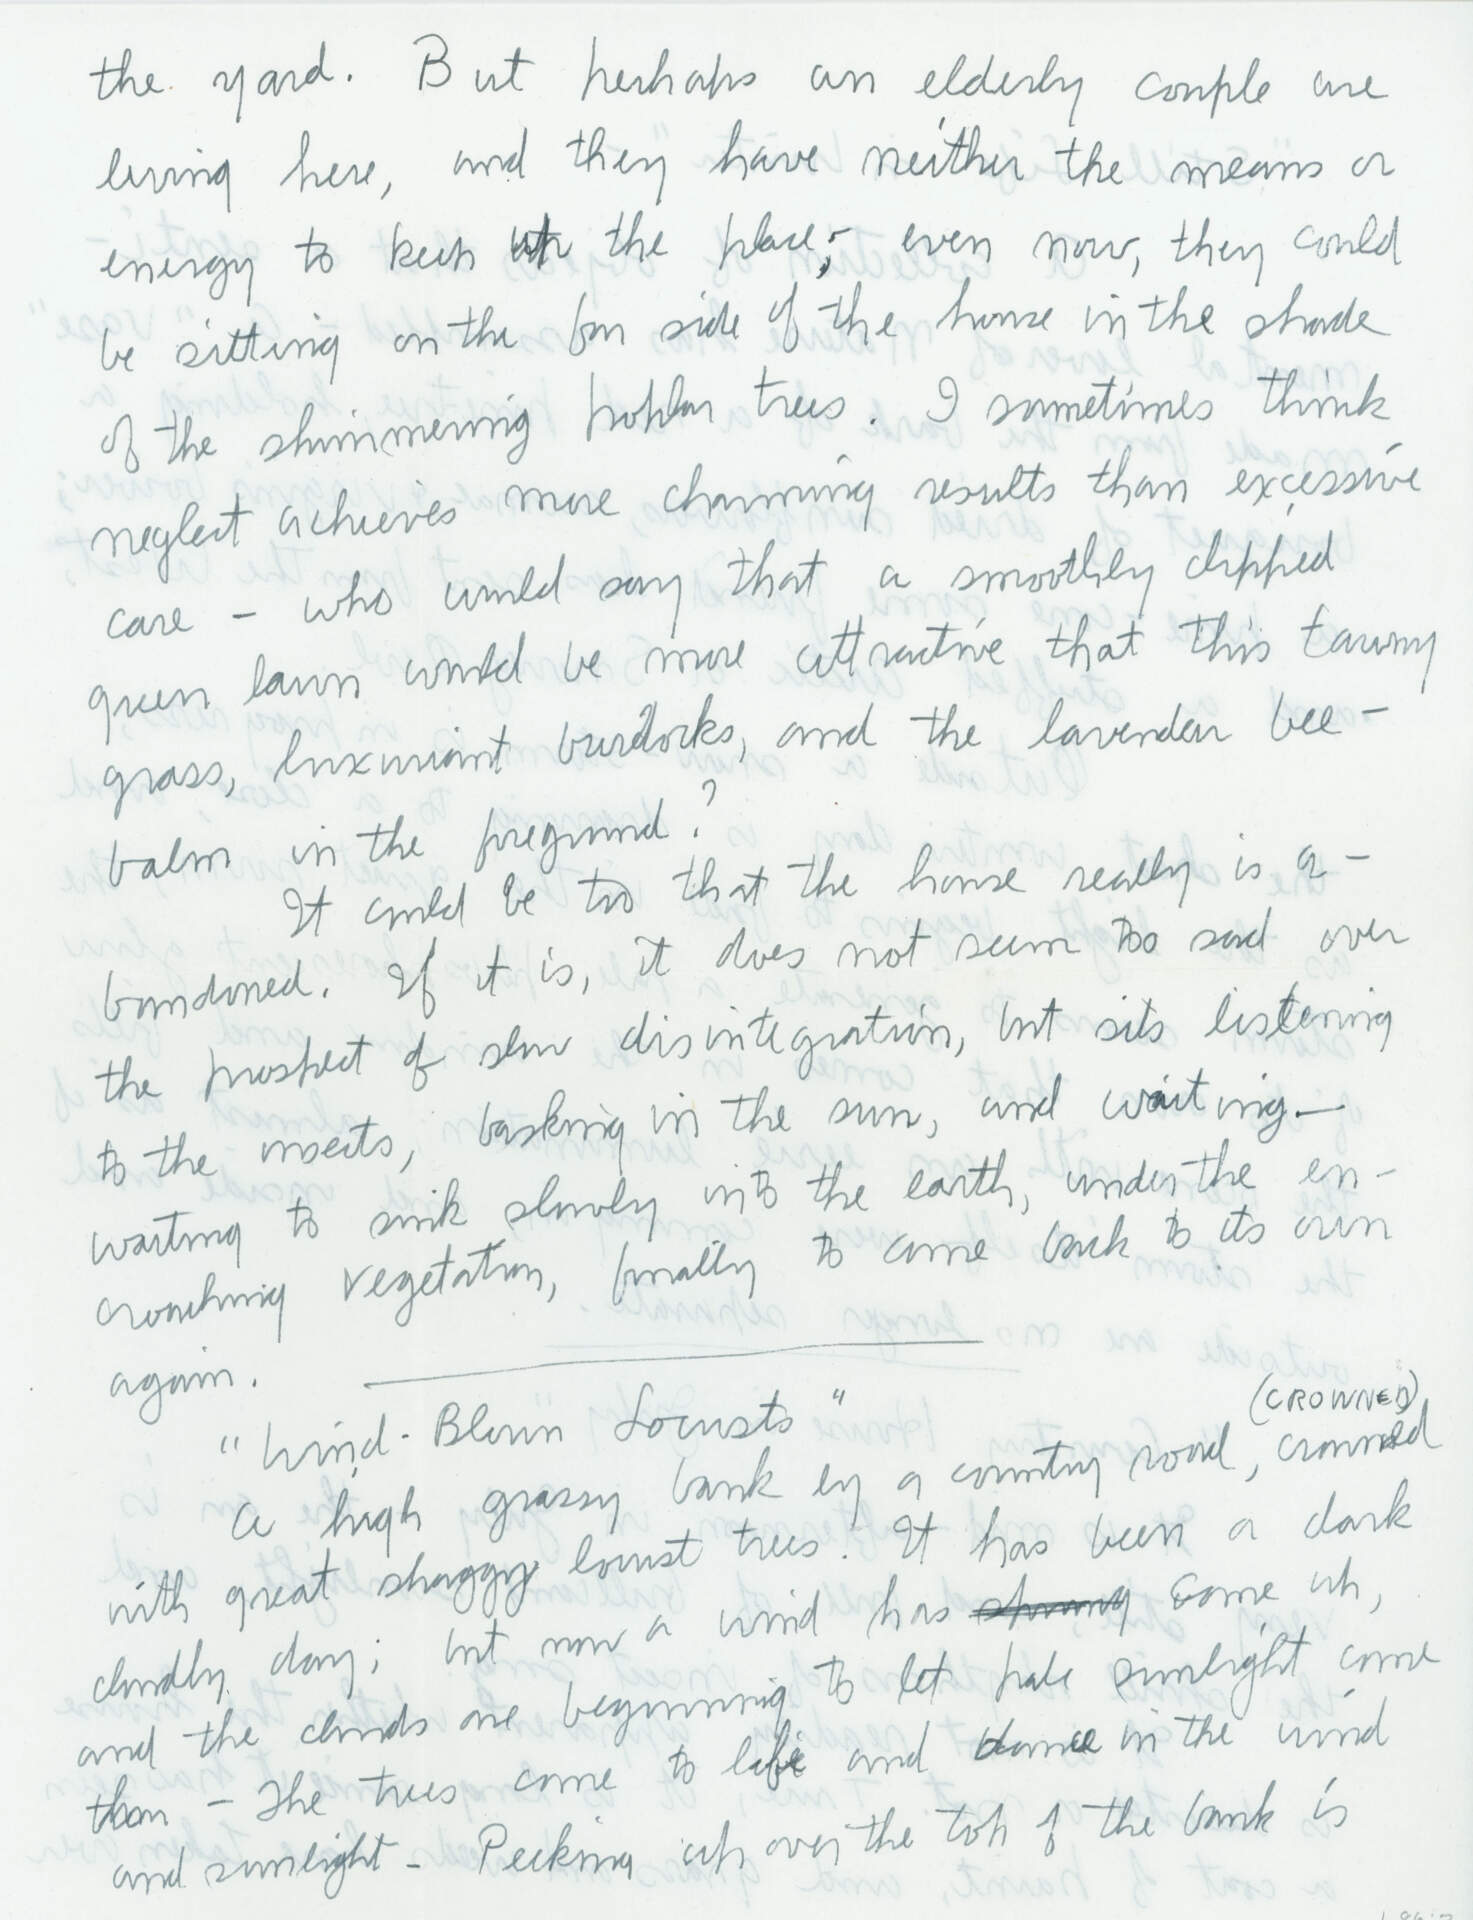 the yard. But perhaps an elderly couple are
living here, and they have neither the means or
energy to keep up the place; even now, they could
be sitting on the far side of the house in the shade
of the shimmering poplar trees. I sometimes think
neglect achieves more charming results than excessive
care - who would say that a smoothly clipped
green lawn would be more attractive that this tawny
grass, luxuriant burdocks, and the lavender bee-
balm in the foreground?
It could be too that the house really is a-
bandoned. If it is, it does not seem too sad over
the prospect of slow disintegration, but sits listening
to the insects, basking in the sun, and waiting—
waiting to sink slowly into the earth, under the en-
croaching vegetation, finally to come back to its own
again.
"Wind-Blown Locusts"
(CROWNED)
A high grassy bank by a country road, crowned
with great shaggy locust trees. It has been a dark
cloudy day; but now a wind has sprung come up,
and the clouds are beginning to let pale sunlight come
thru - The trees come to life and dance in the wind
and sunlight - Peeking up over the top of the bank is